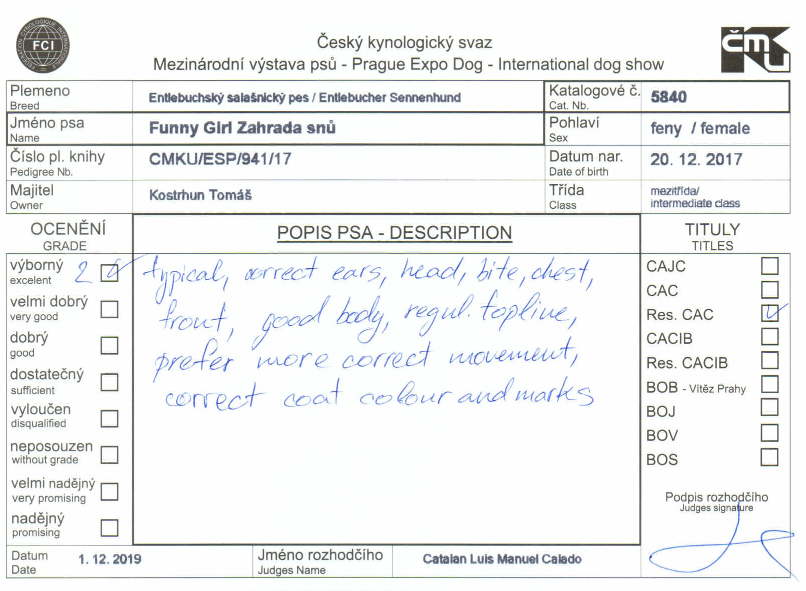 FCI
Český kynologický svaz
Mezinárodní výstava psů - Prague Expo Dog - International dog show
ČMKU
Plemeno
Breed
Entlebuchský salašnický pes / Entlebucher Sennenhund
Katalogové č.
Cat. Nb.
5840
Jméno psa
Name
Funny Girl Zahrada snů
Pohlaví
Sex
feny / female
Číslo pl. knihy
Pedigree Nb.
CMKU/ESP/941/17
Datum nar.
Date of birth
20. 12. 2017
Majitel
Owner
Kostrhun Tomáš
Třída
Class
mezitřída/
intermediate class
OCENĚNÍ
GRADE
výborný 2
excelent
velmi dobrý
very good
dobrý
good
dostatečný
sufficient
vyloučen
disqualified
neposouzen
without grade
velmi nadějný
very promising
nadějný
promising
POPIS PSA - DESCRIPTION
typical, correct ears, head, bite, chest,
front, good body, regul. topline,
prefer more correct movement,
correct coat colour and marks
TITULY
TITLES
CAJC
CAC
Res. CAC
CACIB
Res. CACIB
BOB - Vítěz Prahy
BOJ
BOV
BOS
Podpis rozhodčího
Judges signature
Datum
Date
1. 12. 2019
Jméno rozhodčího
Judges Name
Catalan Luis Manuel Calado